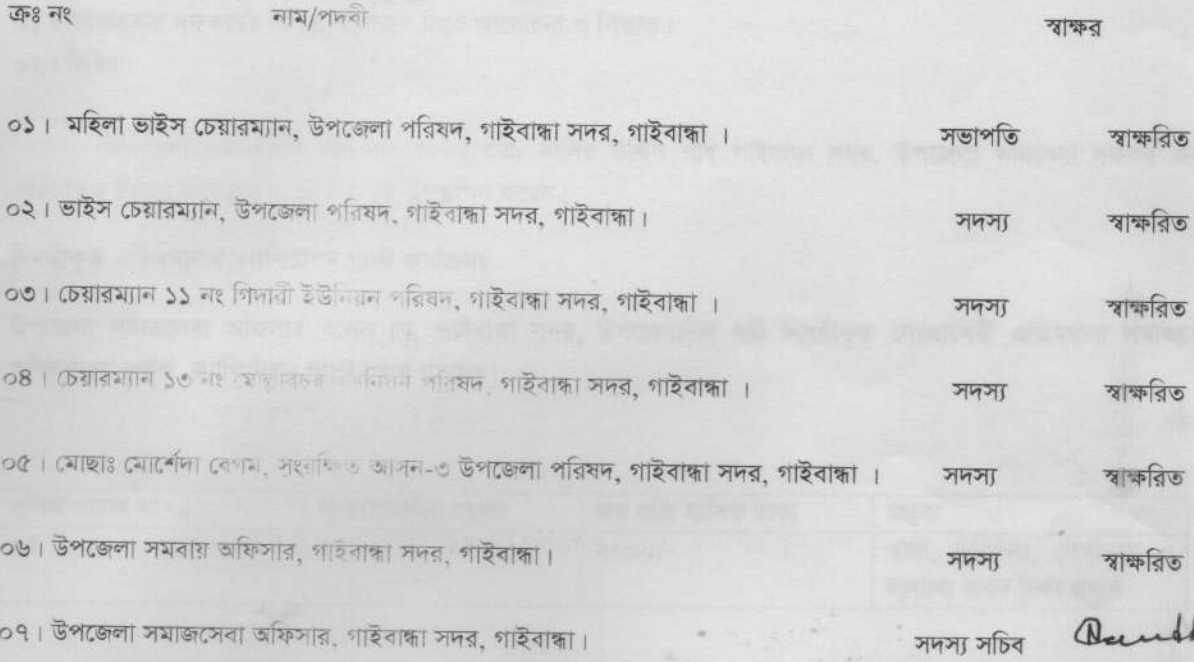 ক্রঃ নং নাম/পদবী স্বাক্ষর
০১। মহিলা ভাইস চেয়ারম্যান, উপজেলা পরিষদ, গাইবান্ধা সদর, গাইবান্ধা । সভাপতি স্বাক্ষরিত
০২। ভাইস চেয়ারম্যান, উপজেলা পরিষদ, গাইবান্ধা সদর, গাইবান্ধা। সদস্য স্বাক্ষরিত
০৩। চেয়ারম্যান ১১ নং গিদারী ইউনিয়ন পরিষদ, গাইবান্ধা সদর, গাইবান্ধা । সদস্য স্বাক্ষরিত
০৪। চেয়ারম্যান ১৩ নং পরিষদ, গাইবান্ধা সদর, গাইবান্ধা । সদস্য স্বাক্ষরিত
০৫। মোছাঃ মোর্শেদা বেগম, সংরক্ষিত আসন-৩ উপজেলা পরিষদ, গাইবান্ধা সদর, গাইবান্ধা । সদস্য স্বাক্ষরিত
০৬। উপজেলা সমবায় অফিসার, গাইবান্ধা সদর, গাইবান্ধা। সদস্য স্বাক্ষরিত
০৭। উপজেলা সমাজসেবা অফিসার, গাইবান্ধা সদর, গাইবান্ধা। সদস্য সচিব